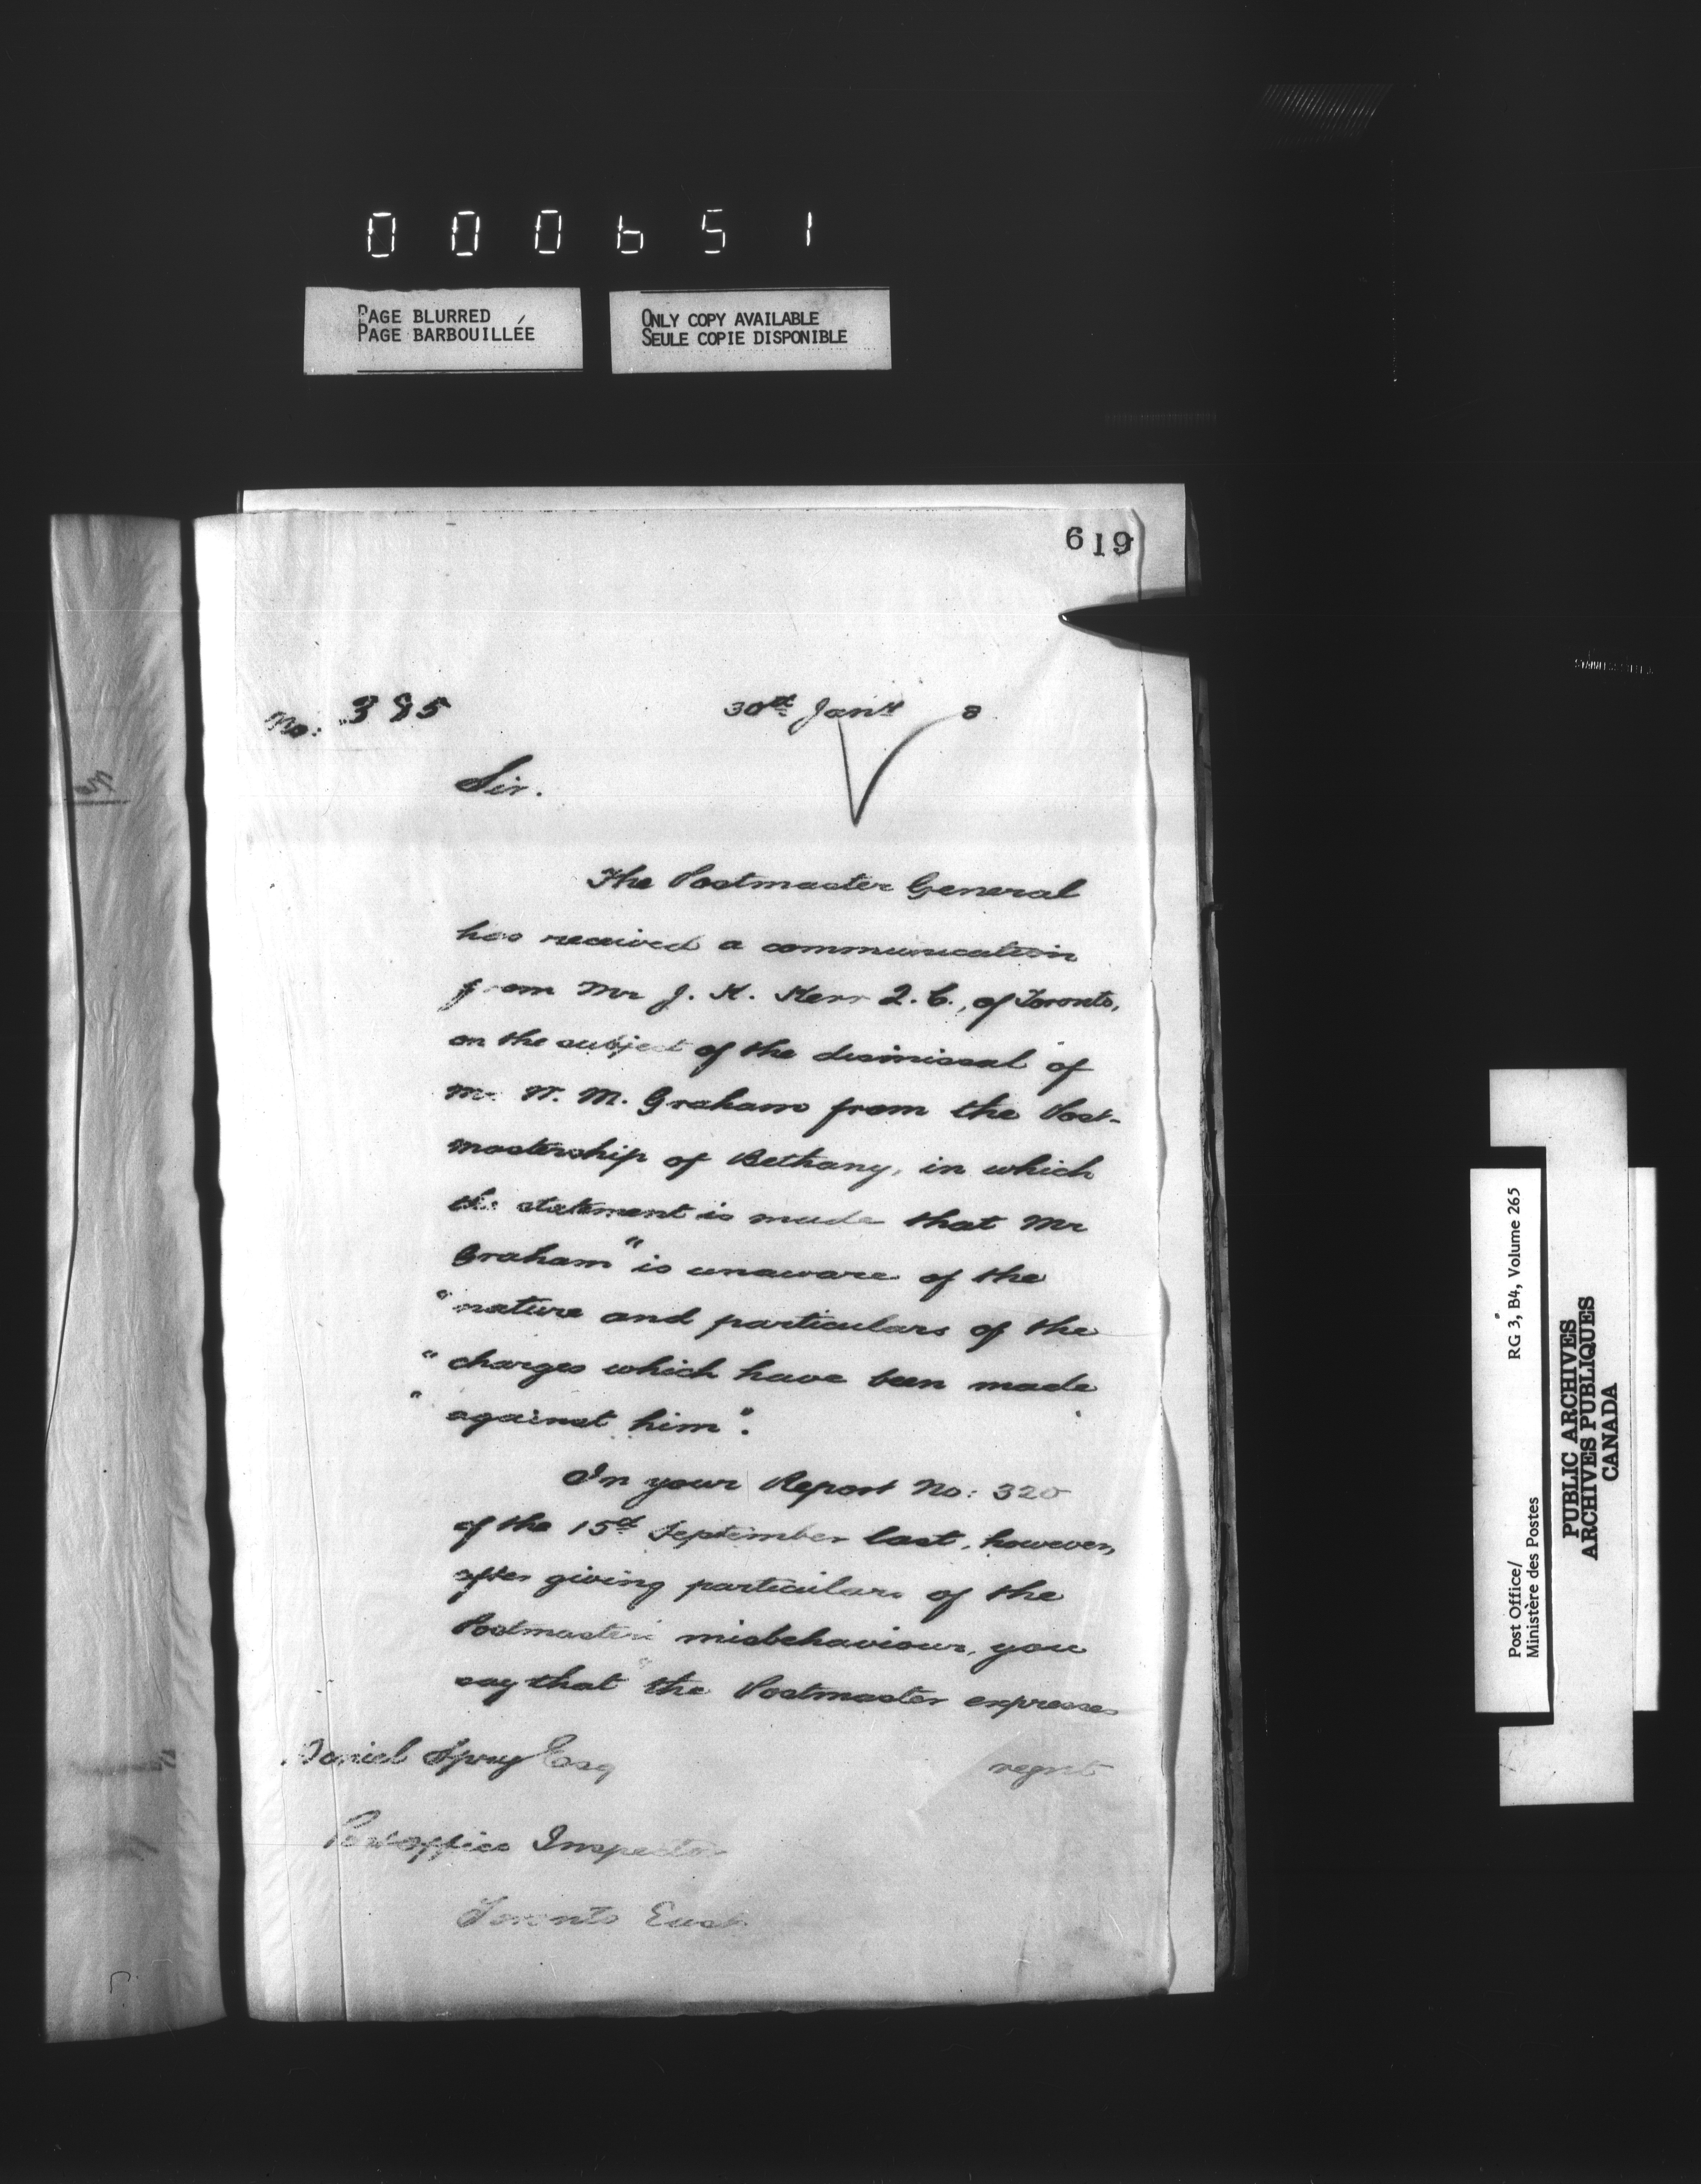 000651
PAGE BLURRED
PAGE BARBOUILLÉE
ONLY COPY AVAILABLE
SEULE COPIE DISPONIBLE
619
No: 385
30th Jany 8
Sir.
The Postmaster General
has received a communication
from Mr J. K. Kerr Q.C., of Toronto,
on the subject of the dismissal of
Mr W. M. Graham from the Post-
mastership of Bethany, in which
the statement is made that Mr
Graham "is unaware of the
"nature and particulars of the
"charges which have been made
"against him".
In your Report No: 320
of the 15th September last, however,
after giving particulars of the
Postmasters misbehaviour, you
say that "the Postmaster expresses
regret
Daniel Spry Esq
Post office Inspector
Toronto East
Post Office/
Ministère des Postes
RG 3, B4, Volume 265
PUBLIC ARCHIVES
ARCHIVES PUBLIQUES
CANADA